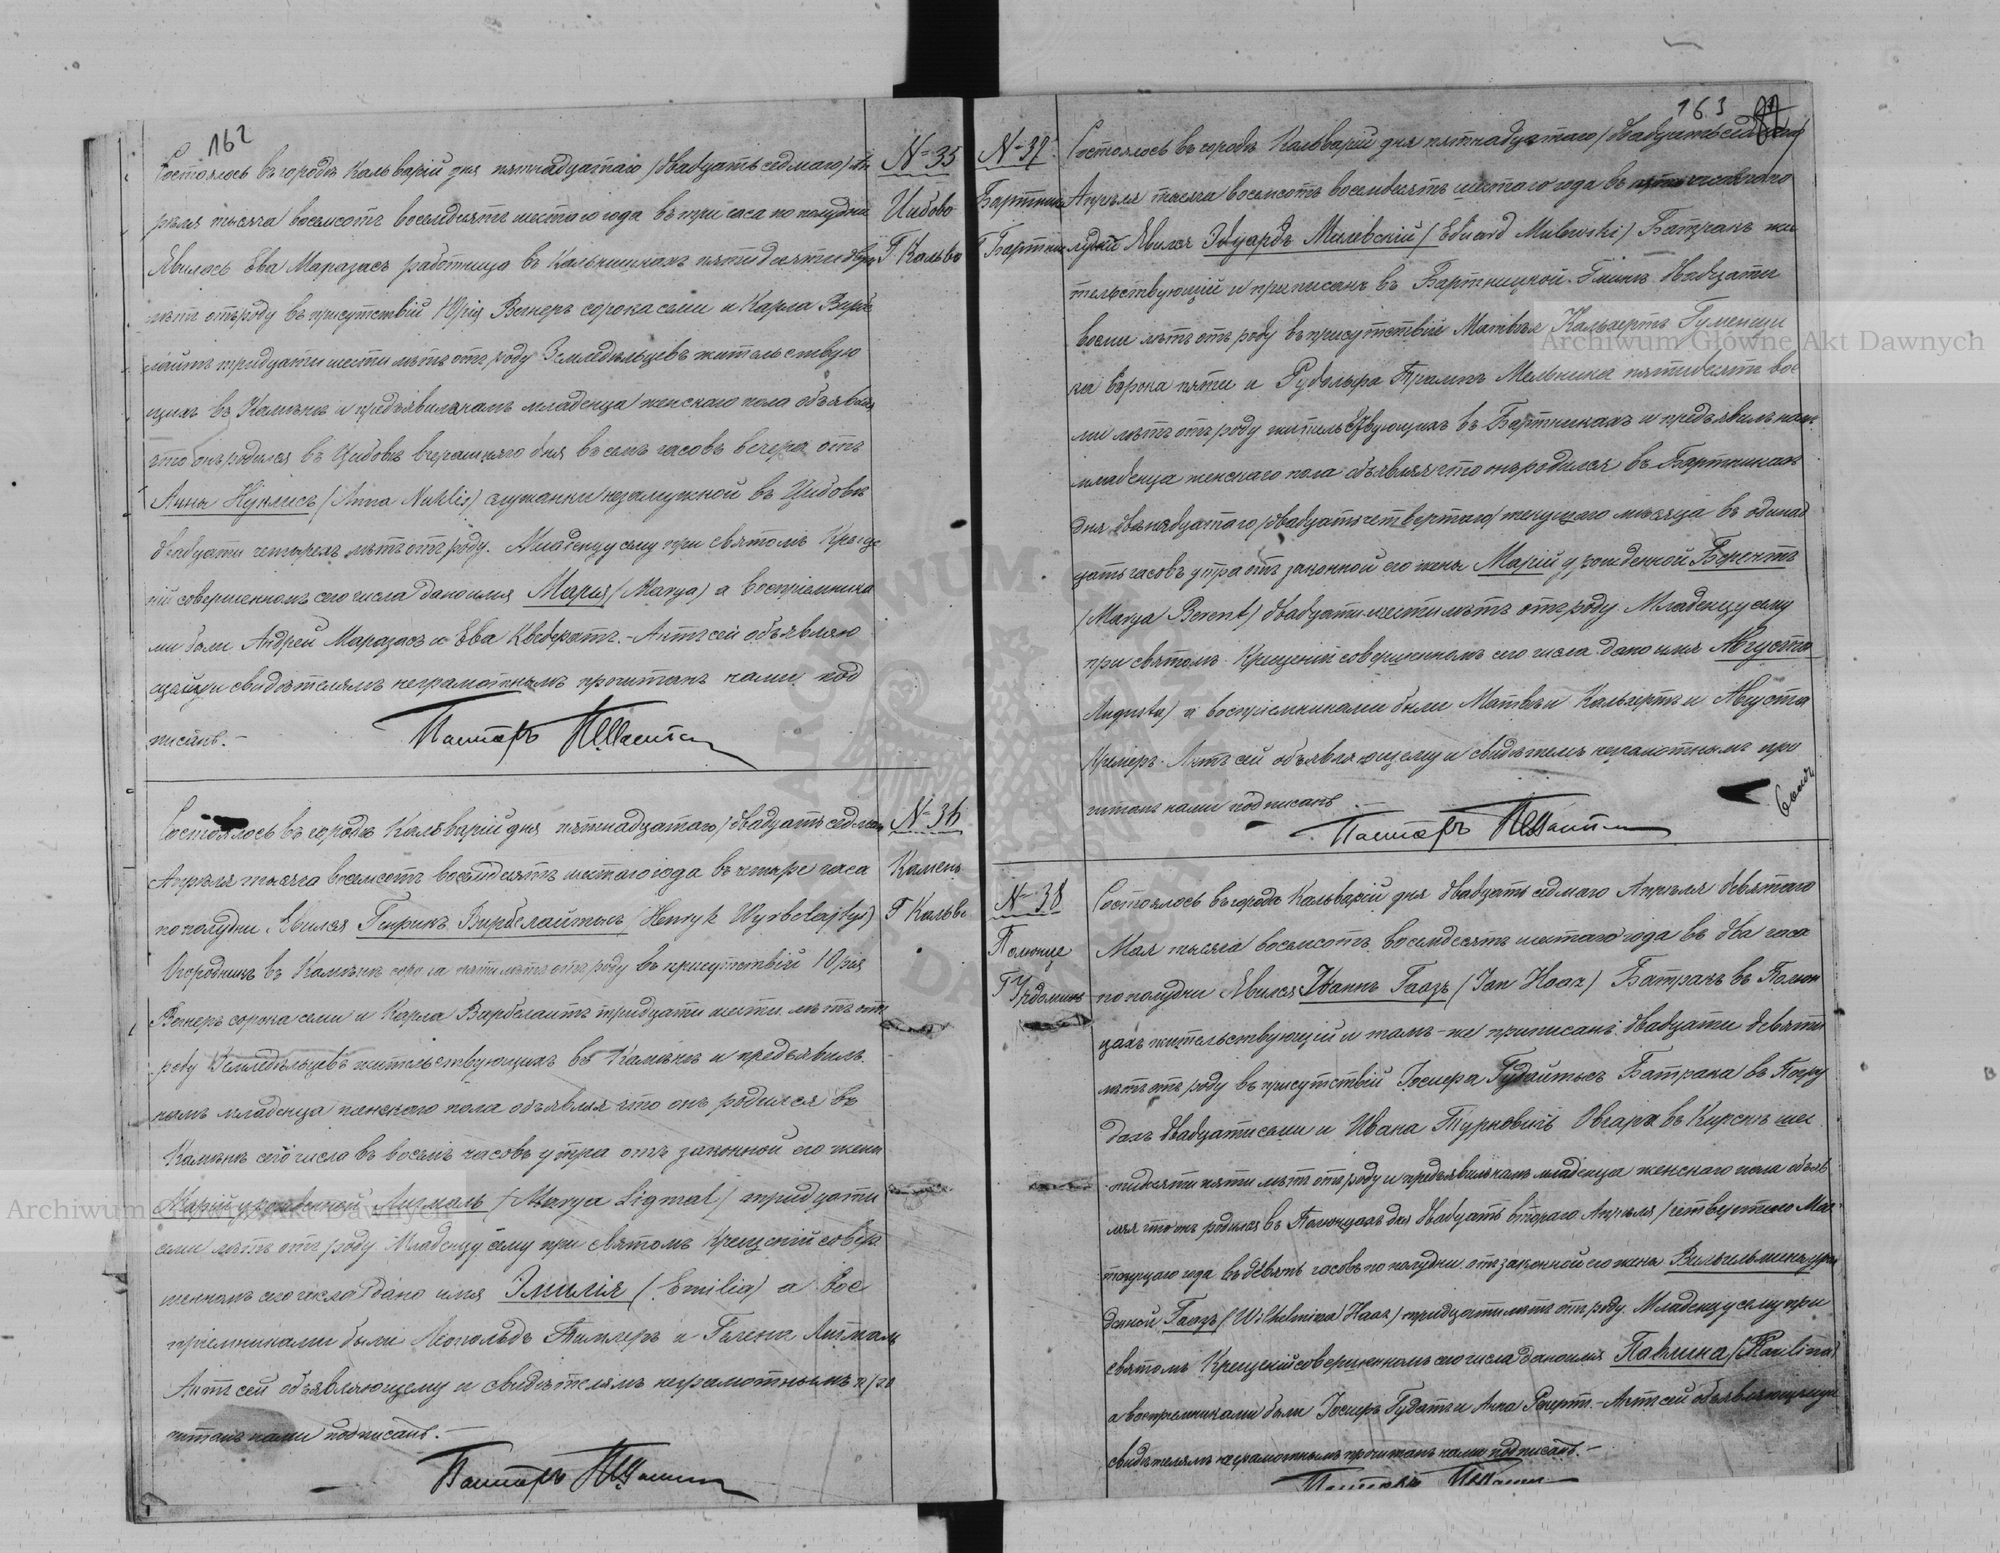 162
Состоялось въ городѣ Кальваріи дня пятнадцатаго /двадцать седмаго/ Ап
рѣля тысяча восемсотъ восемдесятъ шестого года въ три часа по полудни
Явилась Ева Маразасъ работница въ Кальнишкахъ пятидесяти
лѣтъ отъ роду въ присутствіи Юрія Вегнеръ сорока семи и Карла Вирбе
лайтъ тридцати шести лѣтъ отъ роду Земледѣльцевъ жительствую
щихъ въ Камѣнѣ и предъявила намъ младенца женскаго пола объявляя
что онъ родился въ Цибовѣ вчерашняго дня въ семь часовъ вечера отъ
Анны Нуклисъ (Anna Nuklis) служанки незамужной въ Цибовѣ
двадцати четырехъ лѣтъ отъ роду. Младенцу сему при святомъ Креще
ніи совершенномъ сего числа дано имя Марія (Marya) а воспріемника
ми были Андрей Маразасъ и Ева Квефратъ.- Актъ сей объявляю
щей и свидѣтелямъ неграмотнымъ прочитанъ нами под
писанъ.-
Пасторъ
N 35
Цибово
Г Кальва
Состоялось въ городѣ Кальваріи дня пятнадцатаго /двадцать седмаго
Апрѣля тысяча восемсотъ восемдесятъ шестаго года въ четыре часа
по полудни. Явился Генрикъ Вирбелайтысъ (Henryk Wyrbelajtys)
Огородникъ въ Камѣнѣ сорока пяти лѣтъ отъ роду въ присутствіи Юрія
Вегнеръ сорока семи и Карла Вирбелаитъ тридцати шести лѣтъ отъ
роду Земледѣльцевъ жительствующихъ въ Камѣнѣ и предъявилъ
намъ младенца женскаго пола объявляя что онъ родился въ
Камѣнѣ сего числа въ восемь часовъ утра отъ законной его жены
Маріи урожденной Лигмаль (Marya Ligmal) тридцати
семи лѣтъ отъ роду Младенцу сему при святомъ Крещеніи совер
шенномъ сего числа дано имя Эмилія (Emilia) а вос
пріемниками были Леопольдъ и Гелена Лигмаль
Актъ сей объявляющему и свидѣтелямъ неграмотнымъ про
читанъ нами подписанъ.-
Пасторъ
N 36
Камень
Г Кальва
163
N 37.
Бартники
Г Бартники
Состоялось въ городѣ Кальваріи дня пятнадцатаго /двадцать седмаго/
Апрѣля тысяча восемсотъ восемдесятъ шестого года въ
Явился Эдуардъ Милевскій (Eduard Milewski) Батракъ жи
тельствующій и приписанъ въ Бартницкой Гминѣ двадцати
восми лѣтъ отъ роду въ присутствіи Матвѣя Кальхертъ Гуменщи
ка сорока пяти и Рудольфа Трампъ Мельника пятидесяти вос
ми лѣтъ отъ роду жительствующихъ въ Бартникахъ и предъявилъ намъ
младенца женскаго пола объявляя что онъ родился въ Бартникахъ
дня двѣнадцатаго /двадцать четвертаго/ текущаго мѣсяца въ одинад
цать часовъ утра отъ законной его жены Маріи урожденной Берентъ
(Marya Berent) двадцати шести лѣтъ отъ роду Младенцу сему
при святомъ Крещеніи совершенномъ сего числа дано имя Августа
Augusta) а воспріемниками были Матвѣи Кальхертъ и Августа
Кремеръ. Актъ сей объявляющему и свидѣтелямъ неграмотнымъ про
читанъ нами подписанъ
Пасторъ
N 38
Г Урдоминъ
Состоялось въ городѣ Кальваріи дня двадцать седмаго Апрѣля /девятаго
Мая тысяча восемсотъ восемдесятъ шестаго года въ два часа
по полудни Явился Иванъ Гаазъ (Jan Haaz) Батракъ въ
жительствующій и тамъ-же приписанъ двадцати девяти
лѣтъ отъ роду въ присутствіи Іосифа Гудайтысъ Батрака въ Погру
дахъ двадцати семи и Ивана Турновичъ Овчара въ Курскѣ шес
тидесяти пяти лѣтъ отъ роду и предъявилъ намъ младенца женскаго пола объяв
ляя что онъ родился въ дня двадцать втораго Апрѣля /четвертаго Мая
текущаго года въ девять часовъ по полудни отъ законной его жены Вильгельмины урож
денной Гаазъ (Wilhelmina Haaz) тридцати лѣтъ отъ роду. Младенцу сему при
святомъ Крещеніи совершенномъ сего числа дано имя Павлина (Paulina)
а воспріемниками были Іосифъ Гудатъ и Анна Рогертъ.- Актъ сей объявляющему и
свидѣтелямъ неграмотнымъ прочитанъ нами подписанъ.-
Пасторъ
Archiwum Główne Akt Dawnych
Archiwum Główne Akt Dawnych